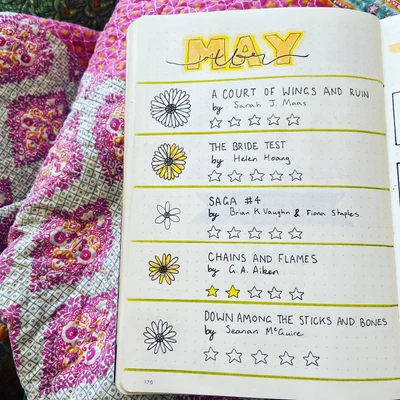 MAY
A COURT OF WINGS AND RUIN
by Sarah J. Maas
THE BRIDE TEST
by Helen Hoang
SAGA #4
by Brian K Vaughn & Fiona Staples
CHAINS AND FLAMES
by G.A. Aiken
DOWN AMONG THE STICKS AND BONES
by Seanan McGuire